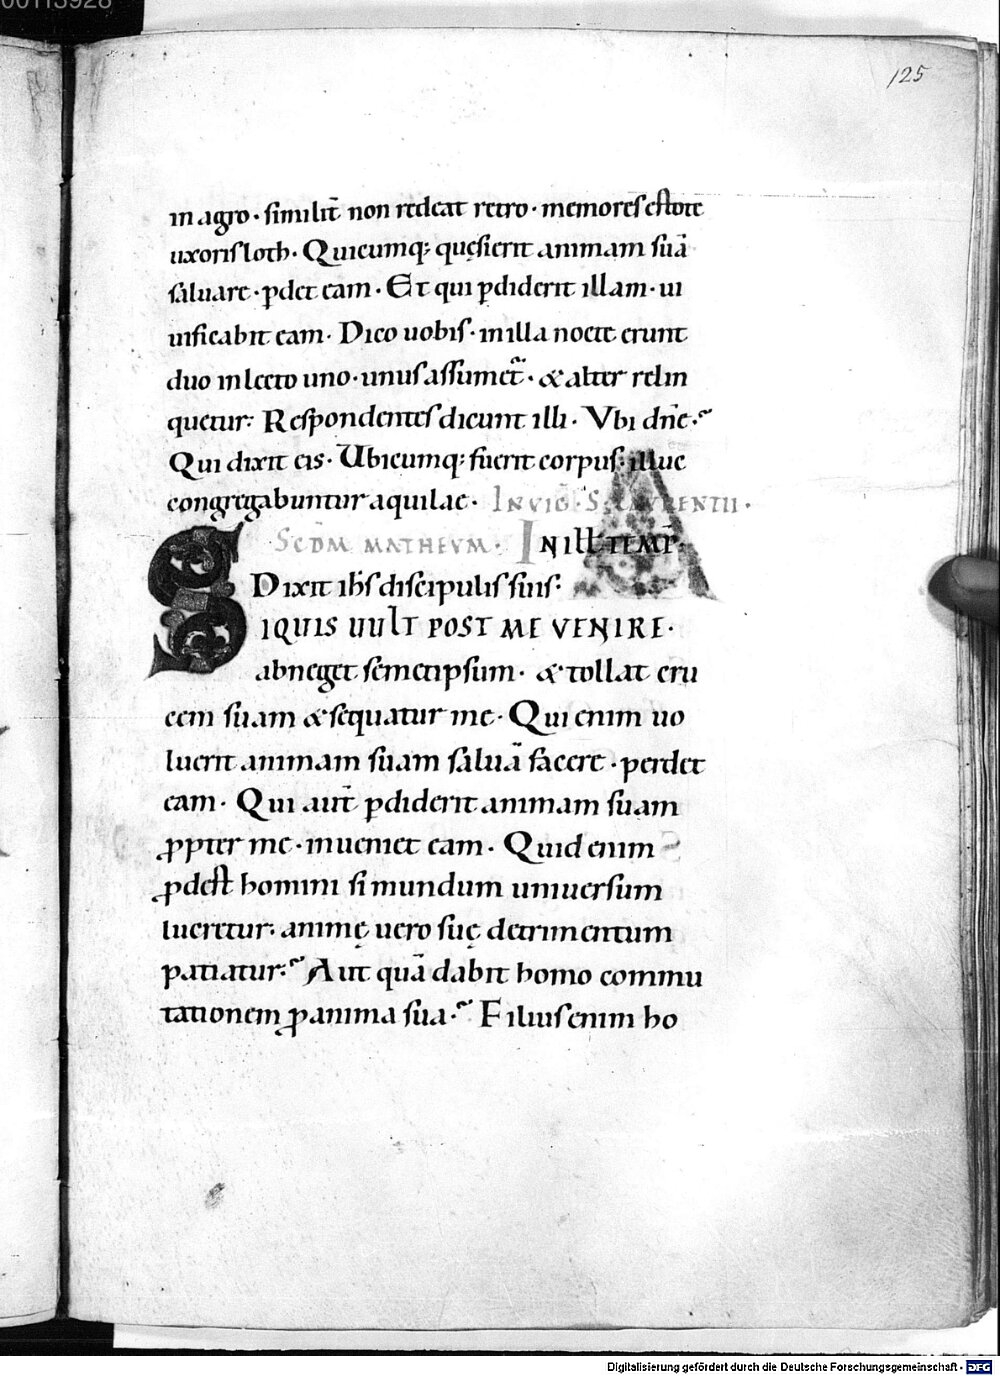 00113928
125
in agro · similit̄ non redeat retro · memores estote
uxoris loth · Quicumq; quęsierit animam suā
saluare · ꝑdet eam · Et qui ꝑdiderit illam · ui
uificabit eam · Dico uobis · in illa nocte erunt
duo in lecto uno · unus assumet᷑ · & alter relin
quetur : Respondentes dicunt illi · Vbi dn̄e ·
Qui dixit eis · Ubicumq; fuerit corpus : illuc
congregabuntur aquilae · IN VIGI S. LAVRENTII ·
SCDM MATHEVM · IN ILL TEMP̄ ·
Dixit ihs̄ discipulis suis :
SIQUIS UULT POST ME VENIRE ·
abneget semetipsum · & tollat cru
cem suam & sequatur me · Qui enim uo
luerit animam suam saluā facere · perdet
eam · Qui aut̄ ꝑdiderit animam suam
ꝓpter me · inueniet eam · Quid enim
ꝓdest homini si mundum uniuersum
lucretur · animę uero suę detrimentum
patiatur : Aut quā dabit homo commu
tationem ꝓ anima sua · Filius enim ho
Digitalisierung gefördert durch die Deutsche Forschungsgemeinschaft · DFG